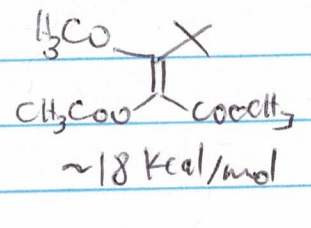 H3CO
CH3COO COOCH3
~18 Kcal/mol